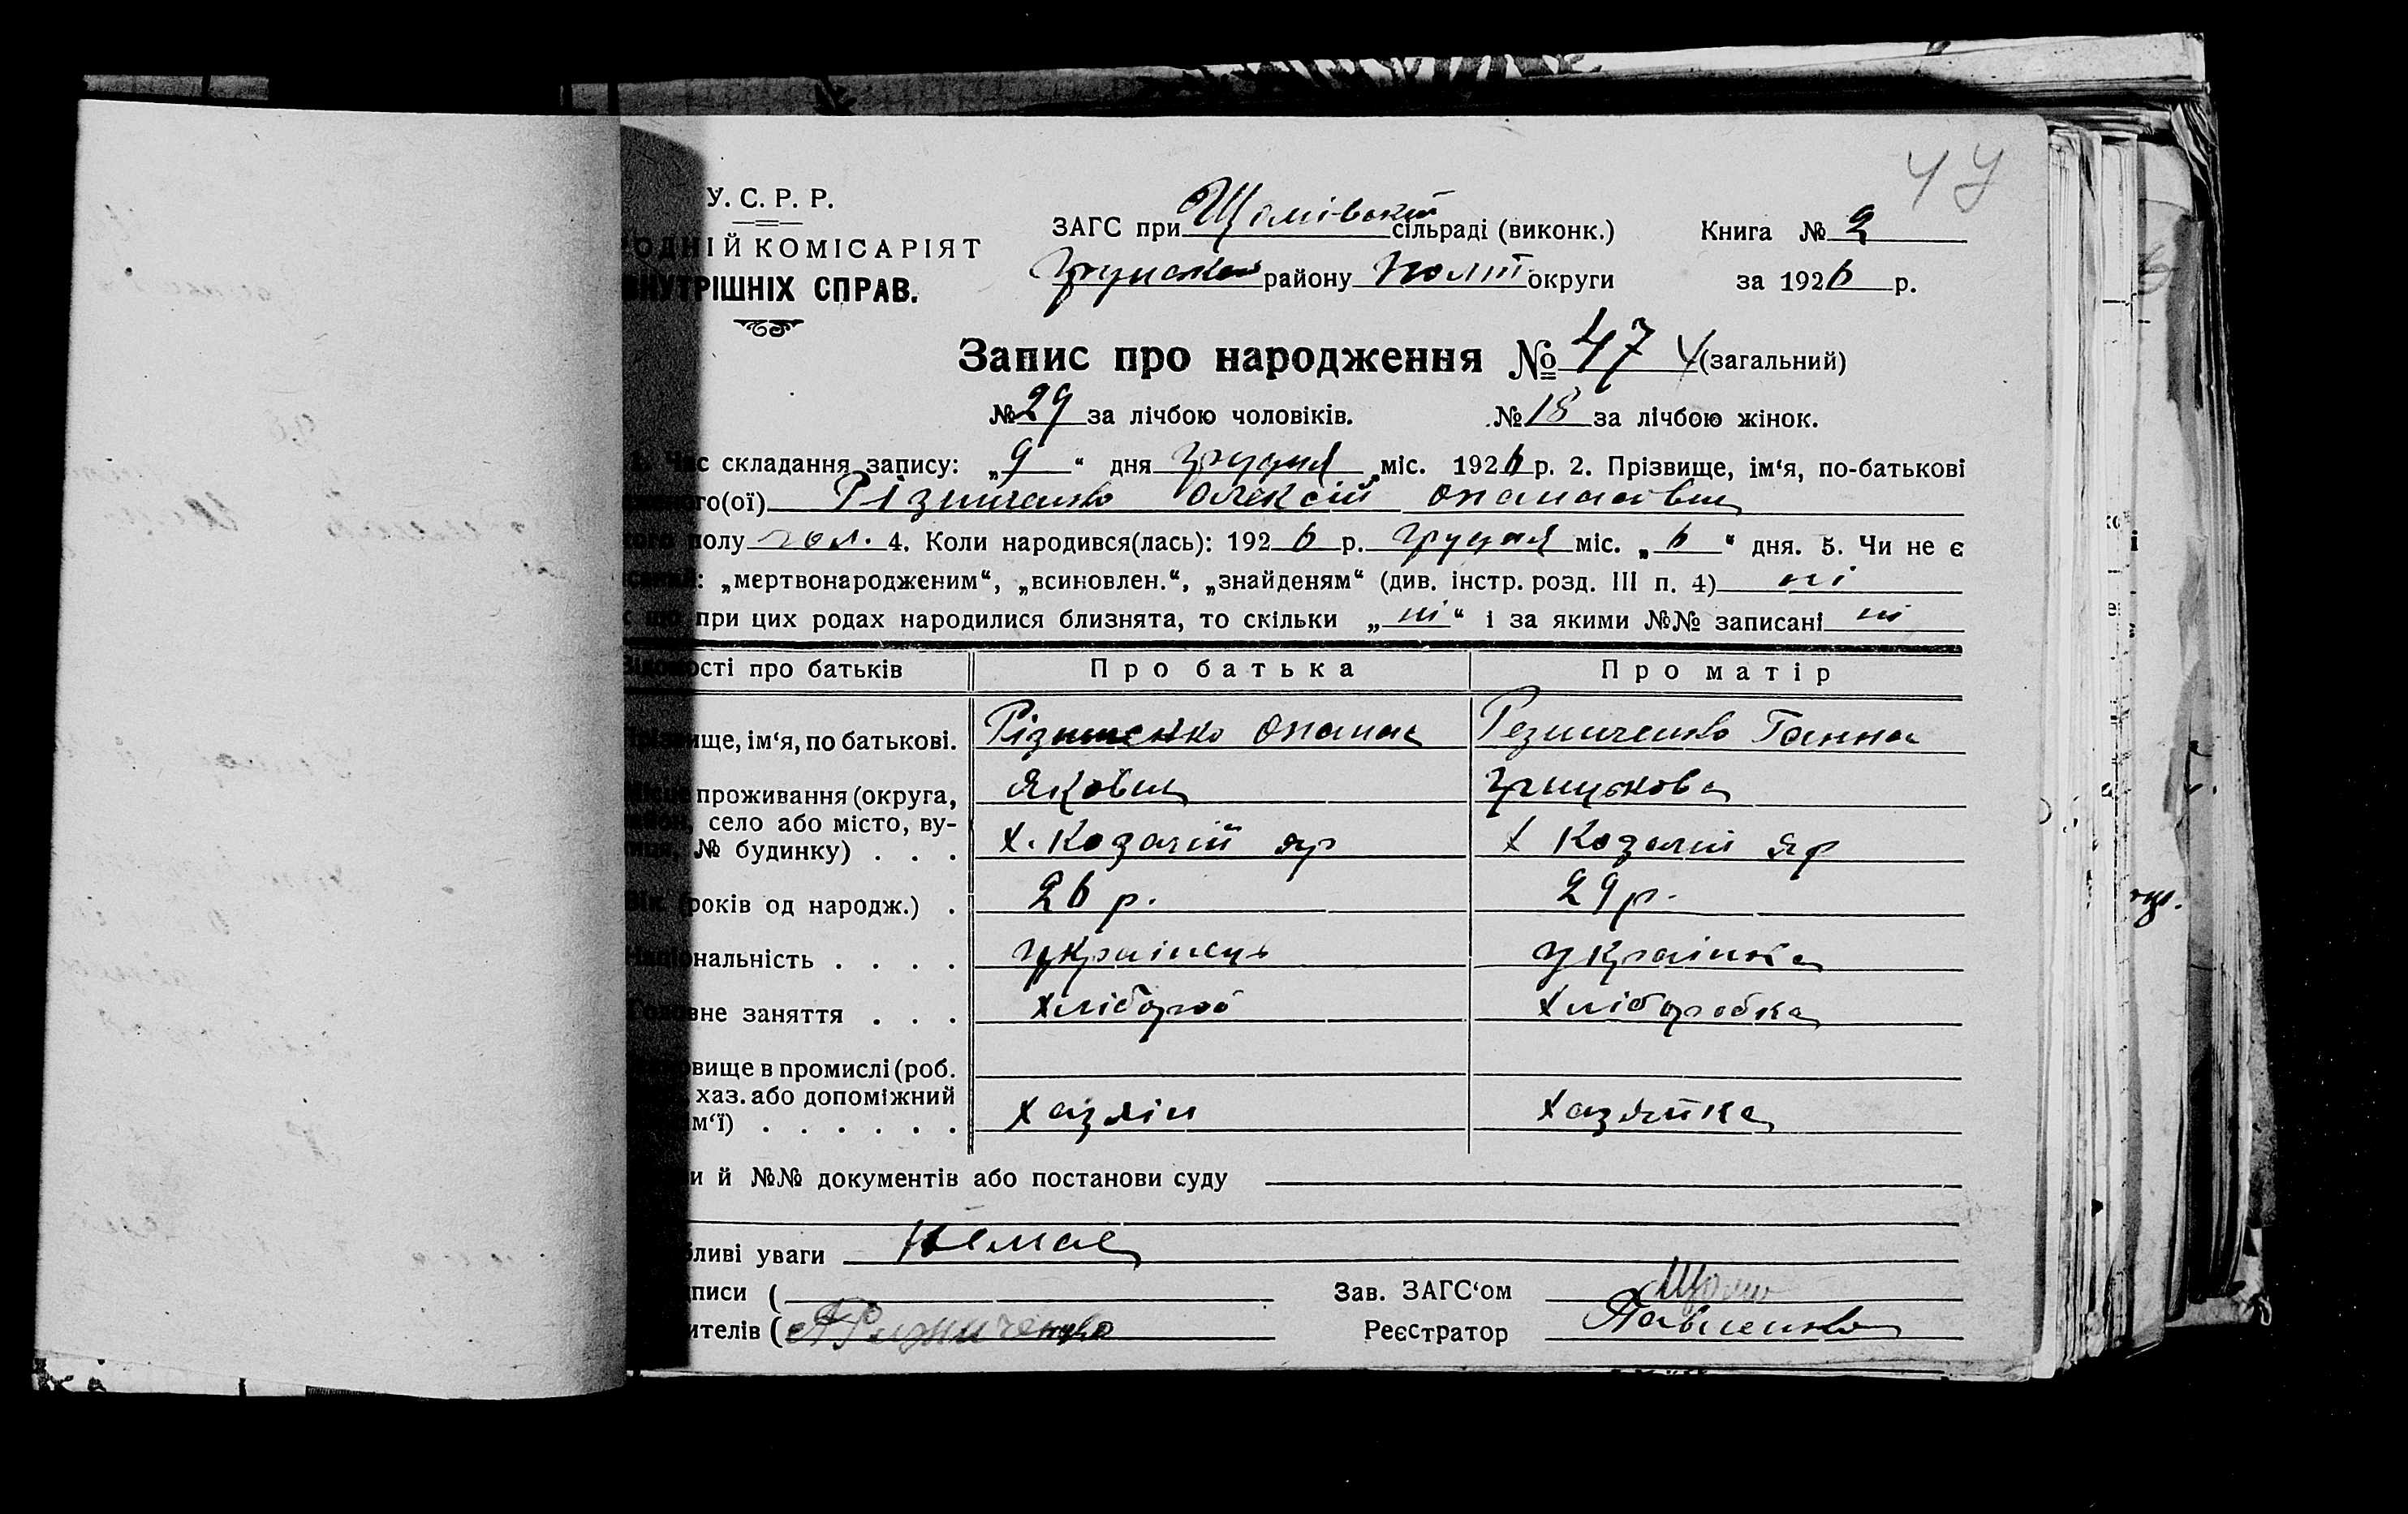 У. С. Р. Р.
ОДНІЙ КОМІСАРІЯТ
ВНУТРІШНІХ СПРАВ.
ЗАГС при Щомівській сільраді (виконк.)
району Полт округи
Книга № 2
за 1926 р.
Запис про народження № 47 (загальний)
№ 29 за лічбою чоловіків. № 18 за лічбою жінок.
1. Час складання запису: „9“ дня грудня міс. 1926 р. 2. Прізвище, ім‘я, по-батькові
го(ої) Різниченко Олексій Опанасович
полу чол. 4. Коли народився(лась): 1926 р. грудня міс. „6“ дня. 5. Чи не є
: „мертвонародженим“, „всиновлен.“, „знайденям“ (див. інстр. розд. III п. 4) ні
що при цих родах народилися близнята, то скільки „ні“ і за якими №№ записані ні
Відомості про батьків Про батька Про матір
Прізвище, ім‘я, по батькові. Різниченко Опанас Резниченко Ганна
Якович Грицькова
Місце проживання (округа,
район, село або місто, ву-
лиця, № будинку) . . . х. Козачій яр х Козачий яр
Вік (років од народж.) . 26 р. 29 р.
Національність . . . . українець українка
Головне заняття . . . хлібороб хліборобка
вище в промислі (роб.
хаз. або допоміжний
м‘ї) . . . . . . хазяін хазяйка
и й №№ документів або постанови суду
бливі уваги Немає
писи (
ителів ( А Ризниченко
Зав. ЗАГС‘ом
Реєстратор Павленко